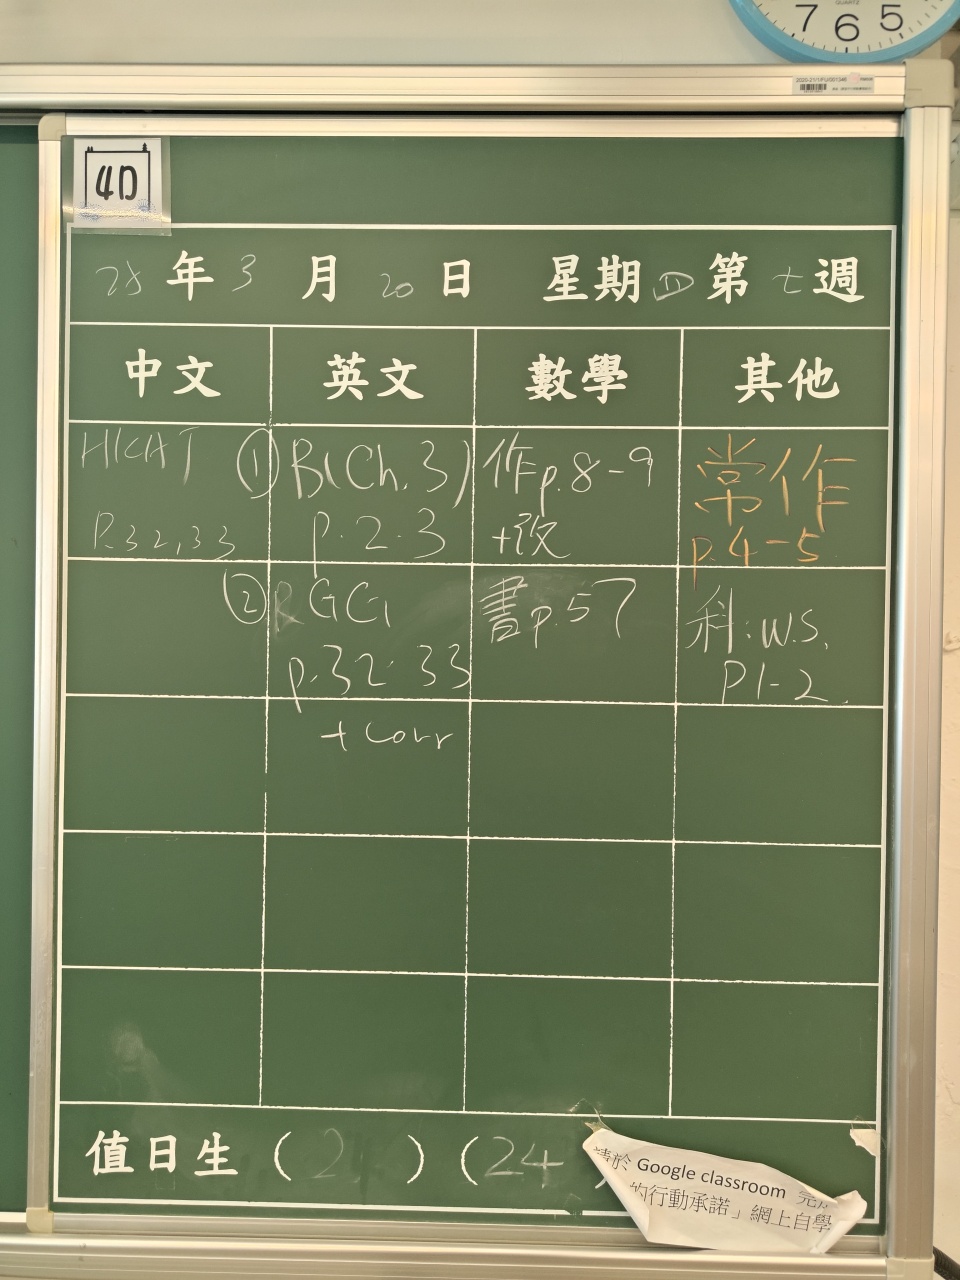 7 6 5
QUARTZ
4D
25年3月20日 星期四第七週
中文 英文 數學 其他
HKAT
P.32,33
① B(Ch.3)
p.2-3
② GCI
p.32-33
+ Corr
作p.8-9
+改
書p.57
常作
p.4-5
科:W.S.
P1-2
值日生 ( 2 ) ( 24
請於 Google classroom 完
的行動承諾」網上自學